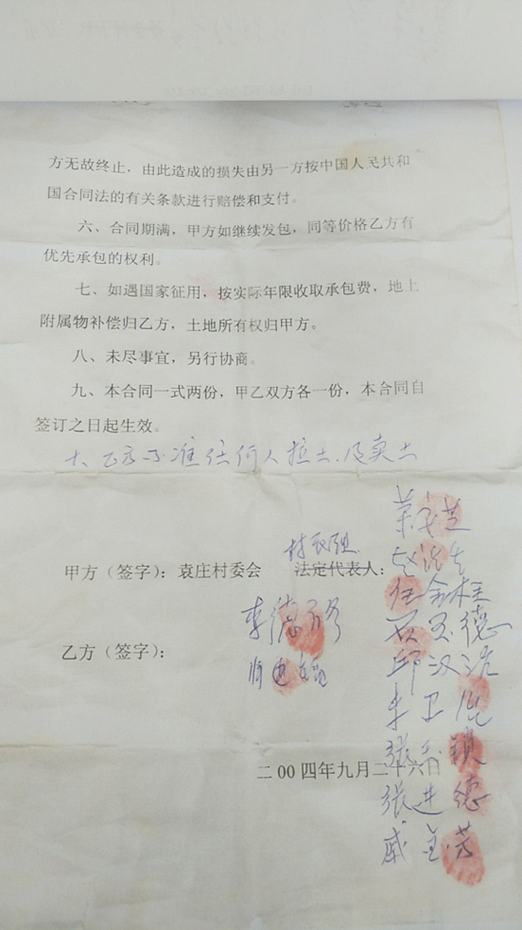 方无故终止，由此造成的损失由另一方按中国人民共和
国合同法的有关条款进行赔偿和支付。
六、合同期满，甲方如继续发包，同等价格乙方有
优先承包的权利。
七、如遇国家征用，按实际年限收取承包费，地上
附属物补偿归乙方，土地所有权归甲方。
八、未尽事宜，另行协商。
九、本合同一式两份，甲乙双方各一份，本合同自
签订之日起生效。
十、乙方不准任何人拉土及卖土
村民组
甲方（签字）：袁庄村委会 法定代表人：
任金柱
李德
乙方（签字）：
邱汉
李卫
张 锁
二00四年九月二十六日
张进德
戚 芳